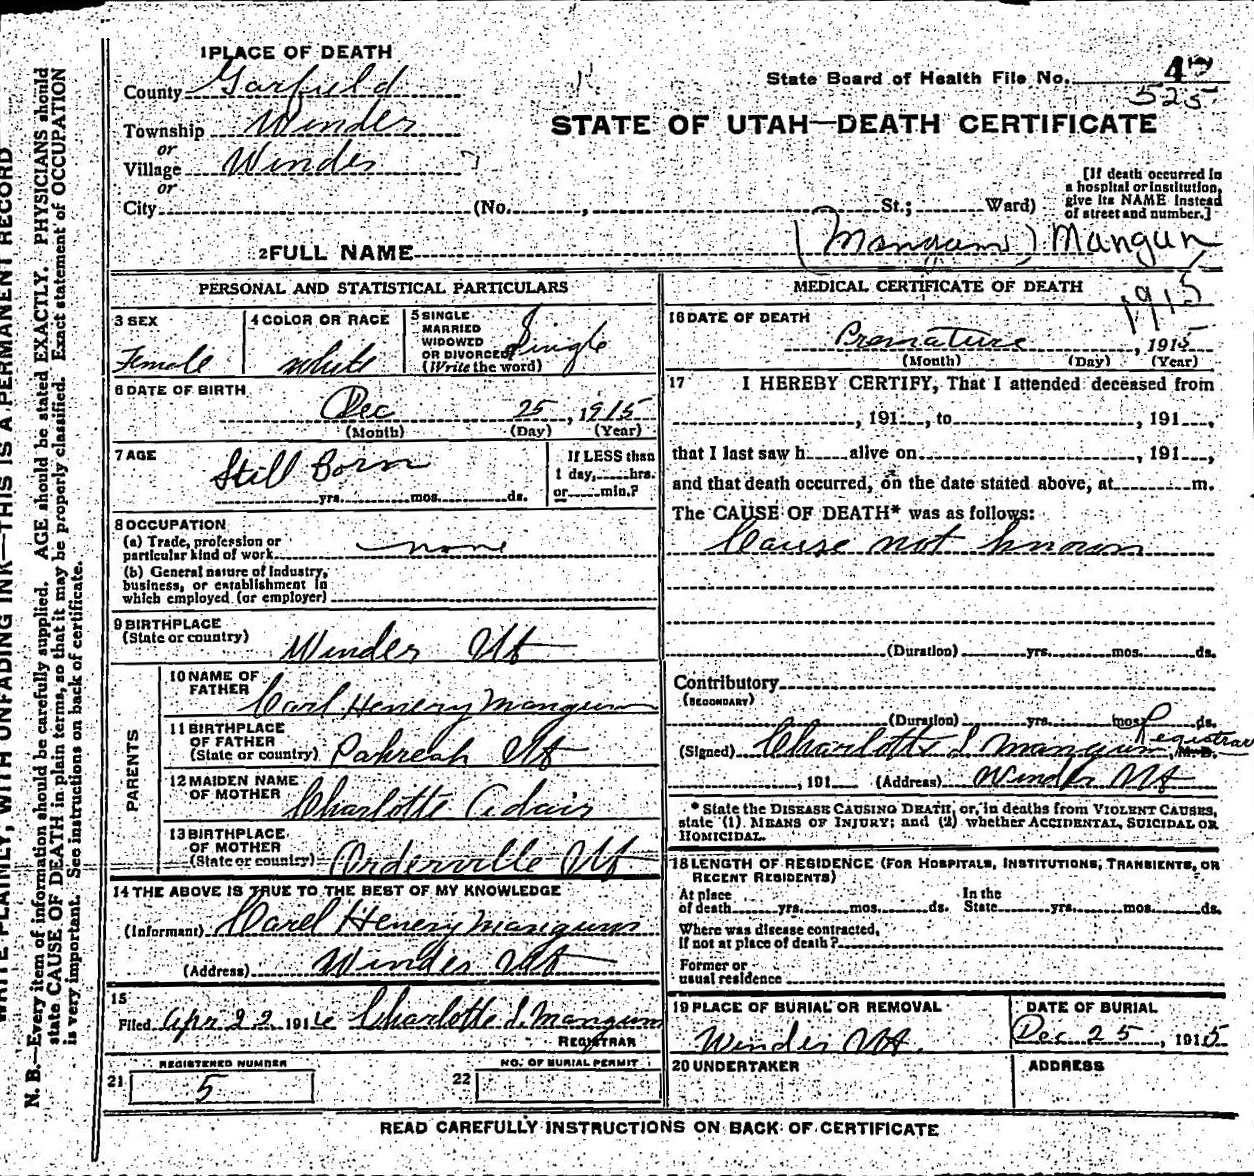 WRITE PLAINLY, WITH UNFADING INK—THIS IS A PERMANENT RECORD
N. B.—Every item of information should be carefully supplied. AGE should be stated EXACTLY. PHYSICIANS should
state CAUSE OF DEATH in plain terms, so that it may be properly classified. Exact statement of OCCUPATION
is very important. See instructions on back of certificate.
1 PLACE OF DEATH
County Garfield
Township Winder
or
Village Winder
or
City (No. , St.; Ward)
State Board of Health File No. 4
525
STATE OF UTAH—DEATH CERTIFICATE
[If death occurred in
a hospital or institution,
give its NAME instead
of street and number.]
2 FULL NAME (Mangum) Mangun
PERSONAL AND STATISTICAL PARTICULARS
3 SEX
Female
4 COLOR OR RACE
White
5 SINGLE
MARRIED
WIDOWED
OR DIVORCED
(Write the word)
Single
6 DATE OF BIRTH
Dec 25, 1915
(Month) (Day) (Year)
7 AGE
Still Born
yrs. mos. ds.
If LESS than
1 day, hrs.
or min.?
8 OCCUPATION
(a) Trade, profession or
particular kind of work none
(b) General nature of Industry,
business, or establishment in
which employed (or employer)
9 BIRTHPLACE
(State or country) Winder Ut
PARENTS
10 NAME OF
FATHER Carl Henery Mangum
11 BIRTHPLACE
OF FATHER
(State or country) Pahreah Ut
12 MAIDEN NAME
OF MOTHER Charlotte Adair
13 BIRTHPLACE
OF MOTHER
(State or country) Orderville Ut
14 THE ABOVE IS TRUE TO THE BEST OF MY KNOWLEDGE
(Informant) Carel Henery Mangum
(Address) Winder Ut
15
Filed Apr 22 1916 Charlotte S. Mangum
REGISTRAR
REGISTERED NUMBER
21 5
NO. OF BURIAL PERMIT
22
MEDICAL CERTIFICATE OF DEATH
1915
16 DATE OF DEATH
Premature, 1915
(Month) (Day) (Year)
17 I HEREBY CERTIFY, That I attended deceased from
, 191 , to , 191 ,
that I last saw h alive on , 191 ,
and that death occurred, on the date stated above, at m.
The CAUSE OF DEATH* was as follows:
Cause not known
(Duration) yrs. mos. ds.
Contributory
(SECONDARY)
(Duration) yrs. mos. ds.
Registrar
(Signed) Charlotte S Mangum, M. D.
, 191 (Address) Winder Ut
* State the DISEASE CAUSING DEATH, or, in deaths from VIOLENT CAUSES,
state (1) MEANS OF INJURY; and (2) whether ACCIDENTAL, SUICIDAL OR
HOMICIDAL.
18 LENGTH OF RESIDENCE (FOR HOSPITALS, INSTITUTIONS, TRANSIENTS, OR
RECENT RESIDENTS)
At place
of death yrs. mos. ds.
In the
State yrs. mos. ds.
Where was disease contracted,
if not at place of death?
Former or
usual residence
19 PLACE OF BURIAL OR REMOVAL
Winder Ut.
DATE OF BURIAL
Dec 25, 1915
20 UNDERTAKER
ADDRESS
READ CAREFULLY INSTRUCTIONS ON BACK OF CERTIFICATE